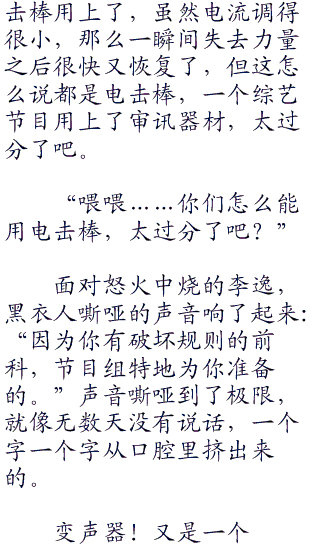 击棒用上了，虽然电流调得
很小，那么一瞬间失去力量
之后很快又恢复了，但这怎
么说都是电击棒，一个综艺
节目用上了审讯器材，太过
分了吧。
“喂喂……你们怎么能
用电击棒，太过分了吧？”
面对怒火中烧的李逸，
黑衣人嘶哑的声音响了起来：
“因为你有破坏规则的前
科，节目组特地为你准备
的。”声音嘶哑到了极限，
就像无数天没有说话，一个
字一个字从口腔里挤出来
的。
变声器！又是一个